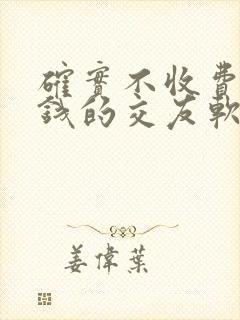 確實不收費
錢的交友軟
姜偉葉